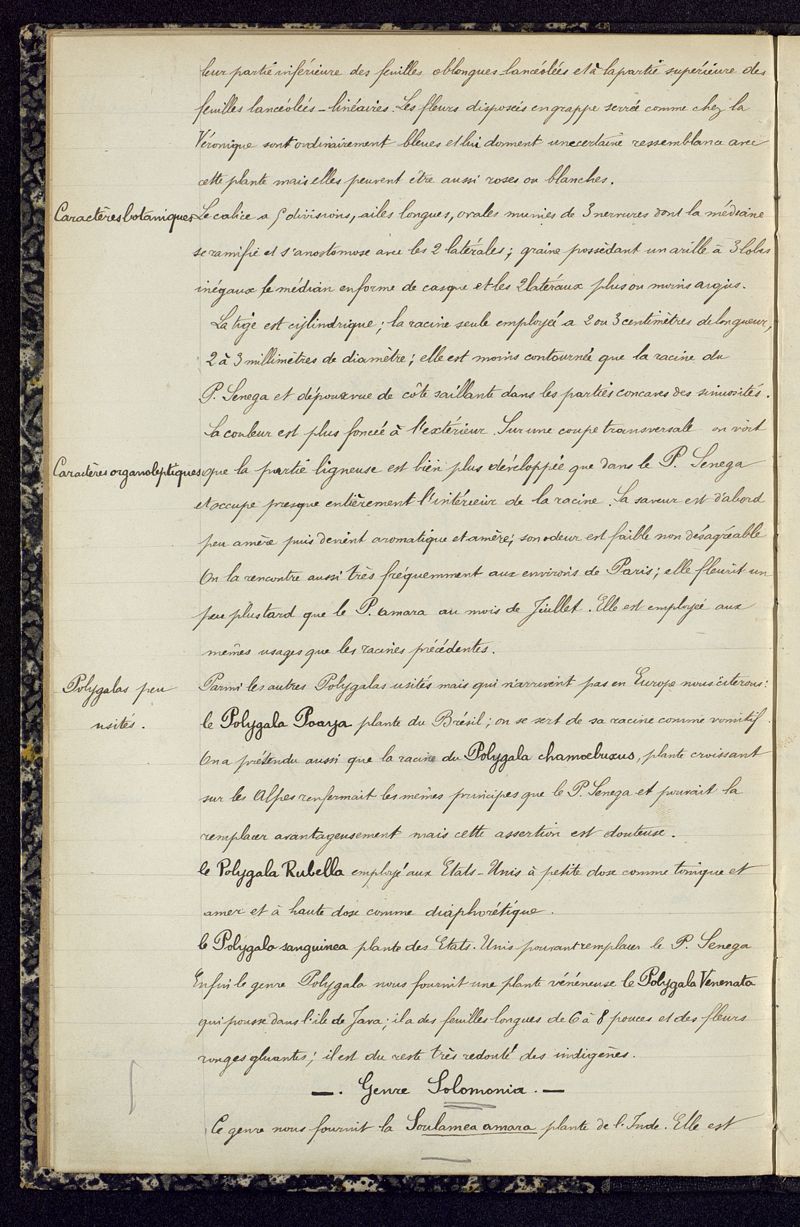 leur partie inférieure des feuilles oblongues lancéolées et à la partie supérieure des
feuilles lancéolées-linéaires. Les fleurs disposées en grappe serrée comme chez la
Véronique sont ordinairement bleues et lui donnent une certaine ressemblance avec
cette plante mais elles peuvent être aussi roses ou blanches.
Caractères botaniques Le calice a 5 divisions, ailes longues, ovales munies de 3 nervures dont la médiane
se ramifie et s'anostomose avec les 2 latérales; graine possédant un arille à 3 lobes
inégaux le médian en forme de casque et les 2 latéraux plus ou moins aigus.
La tige est cylindrique; la racine seule employée a 2 ou 3 centimètres de longueur,
2 à 3 millimètres de diamètre; elle est moins contournée que la racine du
P. Senega et dépourvue de côte saillante dans les parties concaves des sinuosités.
Sa couleur est plus foncée à l'extérieur. Sur une coupe transversale on voit
Caractères organoleptiques que la partie ligneuse est bien plus développée que dans le P. Senega
et occupe presque entièrement l'intérieur de la racine. Sa saveur est d'abord
peu amère puis devient aromatique et amère; son odeur est faible non désagréable
On la rencontre aussi très fréquemment aux environs de Paris; elle fleurit un
peu plus tard que le P. amara au mois de Juillet. Elle est employée aux
mêmes usages que les racines précédentes.
Polygalas peu Parmi les autres Polygalas usités mais qui n'arrivent pas en Europe nous citerons:
usités. le Polygala Poaya plante du Brésil; on se sert de sa racine comme vomitif.
On a prétendu aussi que la racine du Polygala chamoebuxus, plante croissant
sur les Alpes renfermait les mêmes principes que le P. Senega et pouvait la
remplacer avantageusement mais cette assertion est douteuse.
le Polygala Rubella employé aux Etats-Unis à petite dose comme tonique et
amer et à haute dose comme diaphorétique.
le Polygala sanguinea plante des Etats-Unis pouvant remplacer le P. Senega
Enfin le genre Polygala nous fournit une plante vénéneuse le Polygala Venenata
qui pousse dans l'île de Java; il a des feuilles longues de 6 à 8 pouces et des fleurs
rouges gluantes; il est du reste très redouté des indigènes.
—. Genre Solomonia. —
Ce genre nous fournit la Soulamea amara plante de l'Inde. Elle est